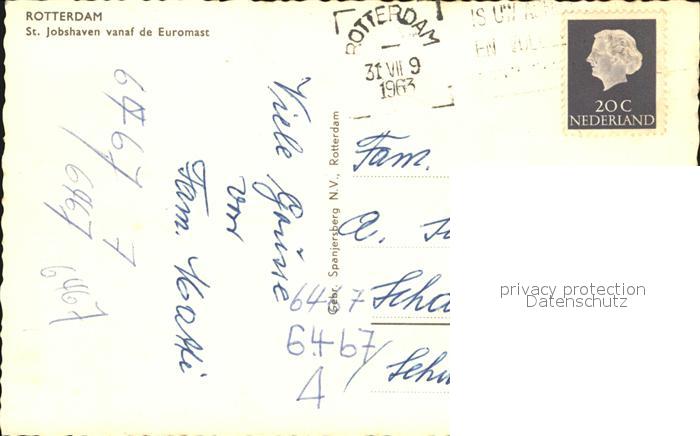 ROTTERDAM
St. Jobshaven vanaf de Euromast
ROTTERDAM
31 VII 9
1963
IS UW
EN
20 C
NEDERLAND
Viele Grüsse
von
Fam.
Gebr. Spanjersberg N.V., Rotterdam
Fam.
A.
6467
6467
6467
6467
6467
privacy protection
Datenschutz